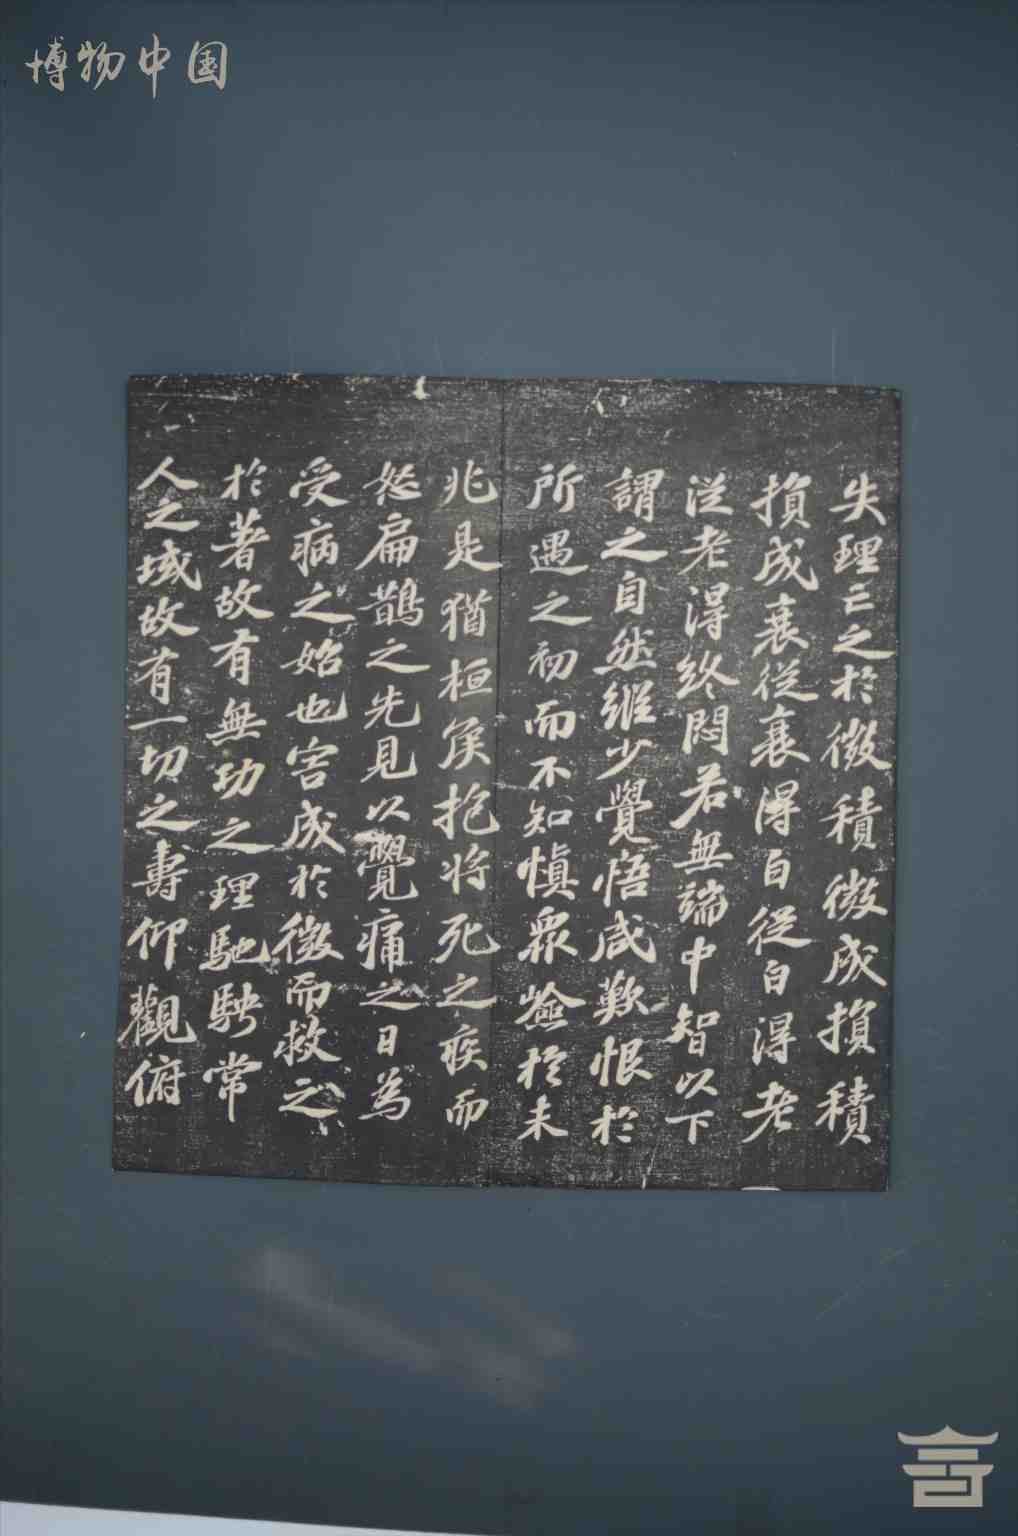 博物中国
失理亡之於微積微成損積
損成衰從衰得白從白得老
從老得終悶若無端中智以下
謂之自然縱少覺悟咸歎恨於
所遇之初而不知慎眾險於未
兆是猶桓侯抱将死之疾而
怒扁鵲之先見以覺痛之日為
受病之始也害成於微而救之
於著故有無功之理馳騁常
人之域故有一切之壽仰觀俯